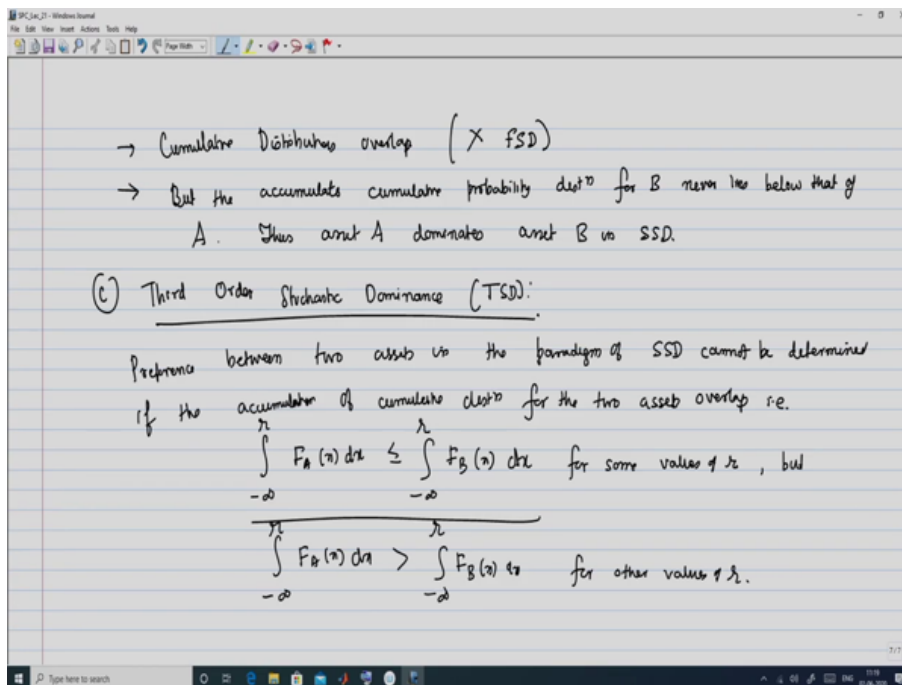 SPC_Lec_21 - Windows Journal
File Edit View Insert Actions Tools Help
Page Width
→ Cumulative Distributions overlap (X FSD)
→ But the accumulate cumulative probability distn for B never lies below that of
A. Thus asset A dominates asset B in SSD.
(C) Third Order Stochastic Dominance (TSD):
Preference between two assets in the paradigm of SSD cannot be determined
if the accumulation of cumulative distn for the two assets overlap i.e.
∫_{-∞}^{r} F_A(x) dx ≤ ∫_{-∞}^{r} F_B(x) dx for some values of r, but
∫_{-∞}^{r} F_A(x) dx > ∫_{-∞}^{r} F_B(x) dx for other values of r.
7/7
Type here to search
ENG 11:19